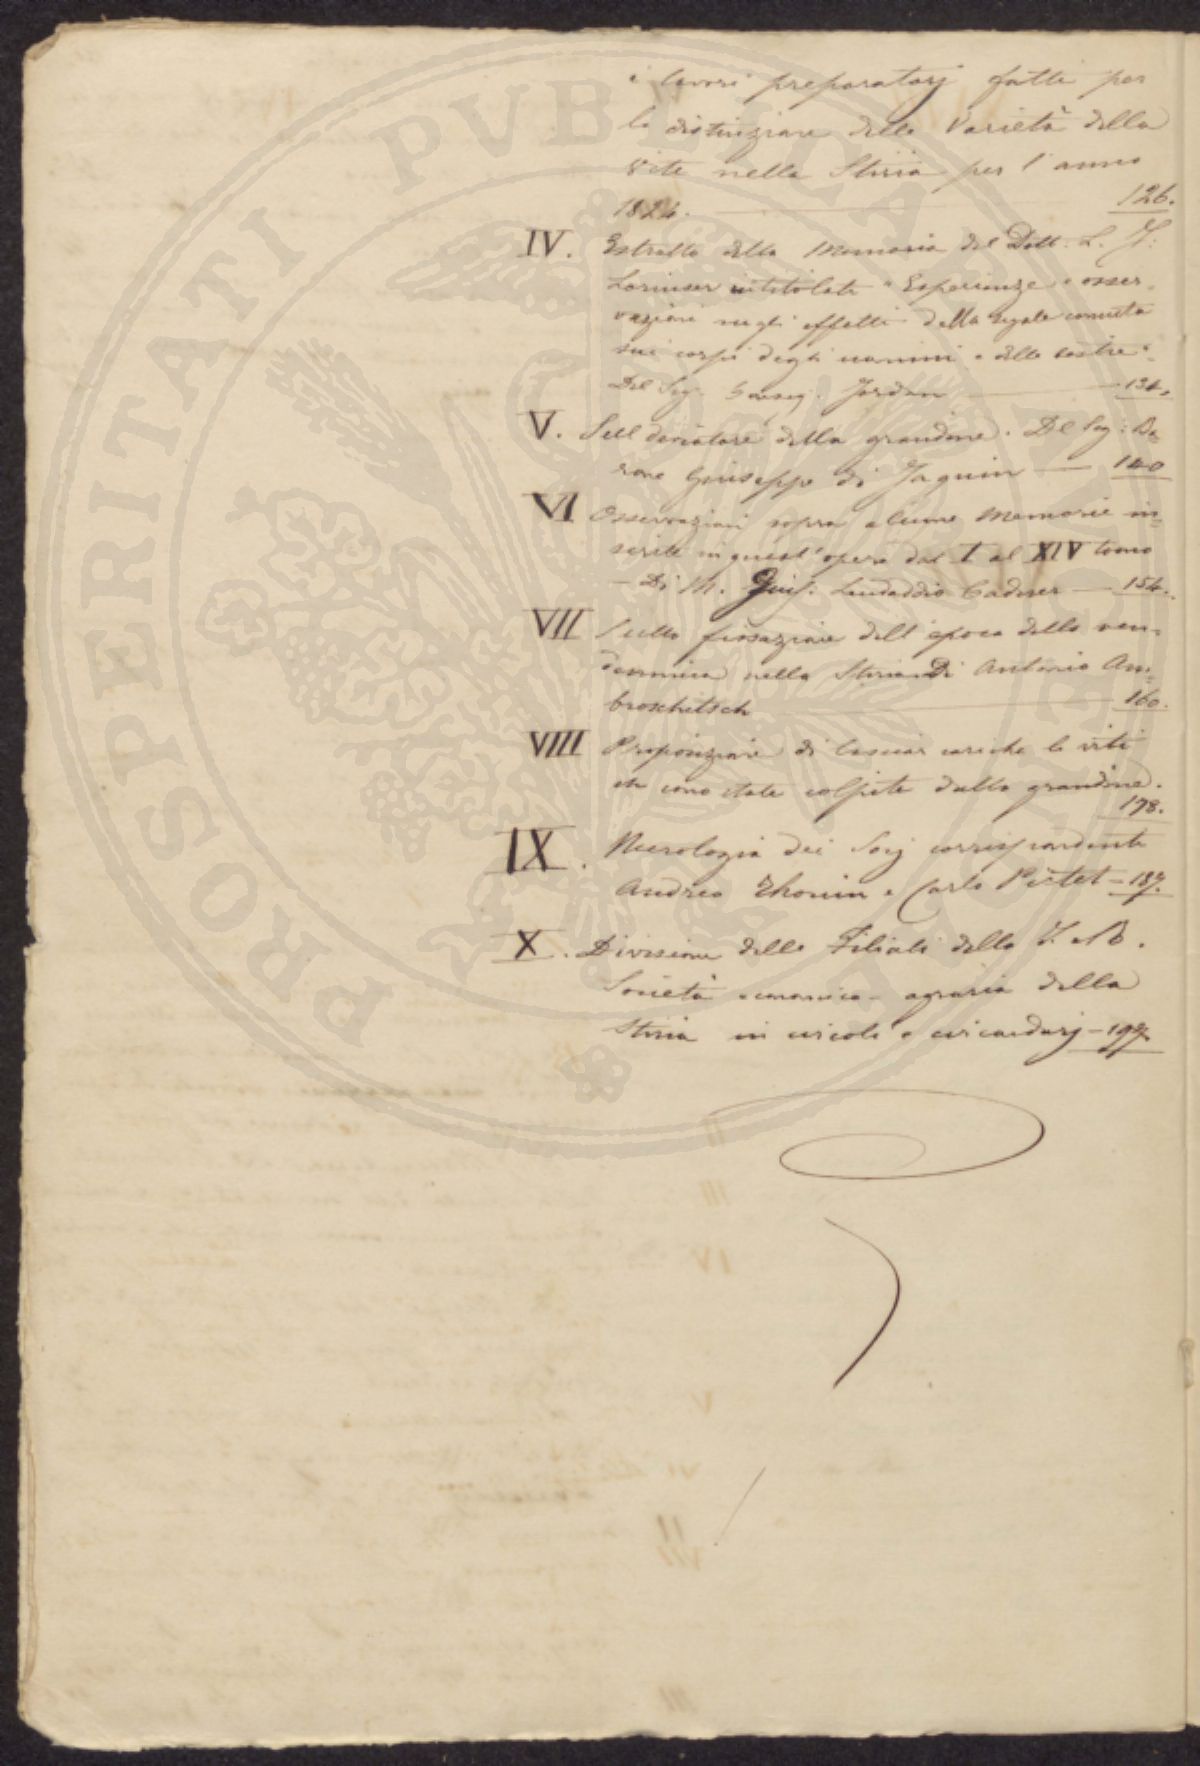 i lavori preparatorj fatti per
la distinzione delle Varietà della
Vite nella Stiria per l'anno
1824. 126.
IV. Estratto della Memoria del Dott. L. F:
Lorinser intitolata "Esperienze e osser-
vazioni sugli effetti della segale cornuta
sui corpi degli uomini e delle bestie"
Del Sig. Jordan 134.
V. Sul deviatore della grandine. Del Sig: Ba-
rone Giuseppe di Jaquin 140
VI Osservazioni sopra alcune Memorie in-
serite in quest'opera dal I al XIV tomo
- Di M. Gius. 154.
VII Sulla fissazione dell'epoca della ven-
demmia nella Stiria Di Antonio Am-
broschitsch 160.
VIII Proposizione di lasciar cariche le viti
che sono state colpite dalla grandine.
178.
IX. Necrologia dei Socj corrispondenti
Andrea Thouin e Carlo Pictet - 187.
X. Divisione delle Filiali della I. e R.
Società economico-agraria della
Stiria in circoli e circondarj - 197.
PROSPERITATI PVBLICAE